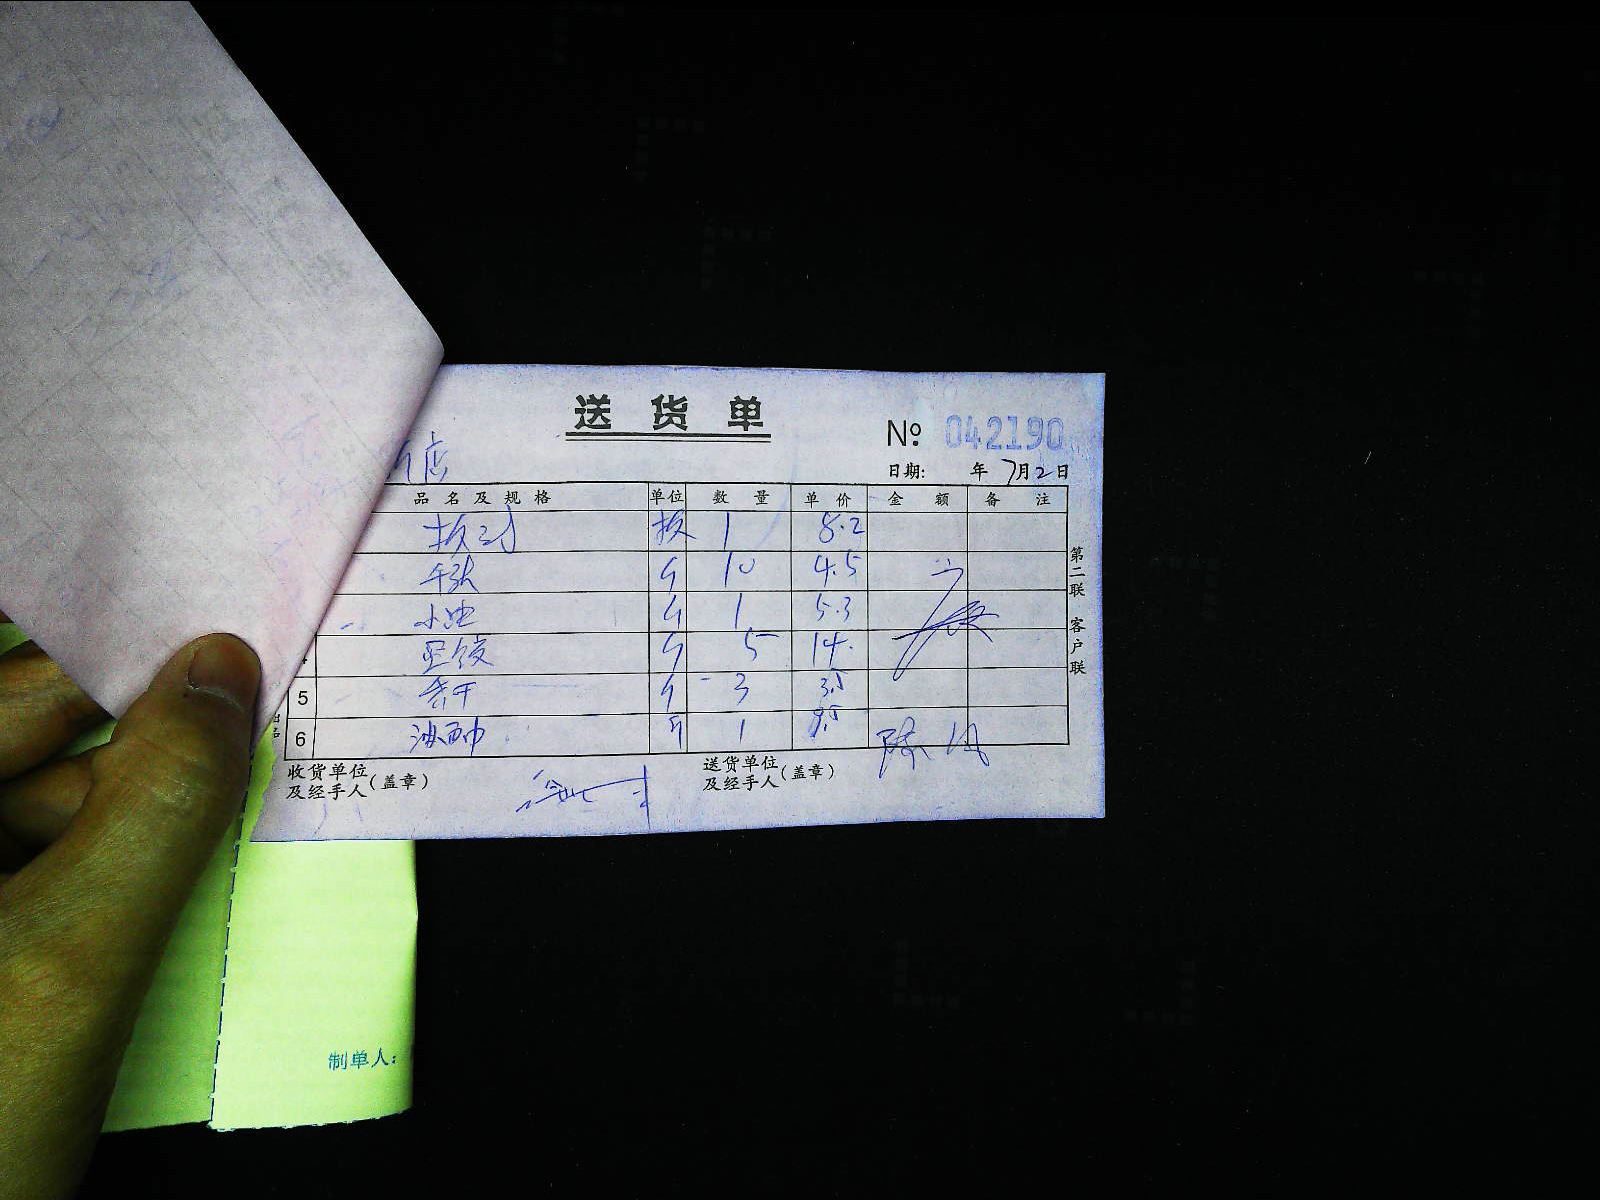 送货单
№ 042190
店
日期: 年 7月2日
品名及规格 单位 数量 单价 金额 备注
板 1 8.2
千张 斤 10 4.5
小 斤 1 5.3
斤 5 14.
5 香干 斤 3 3.5
6 油面巾 斤 1 9.5
第二联 客户联
收货单位及经手人(盖章)
送货单位及经手人(盖章)
陈
制单人: